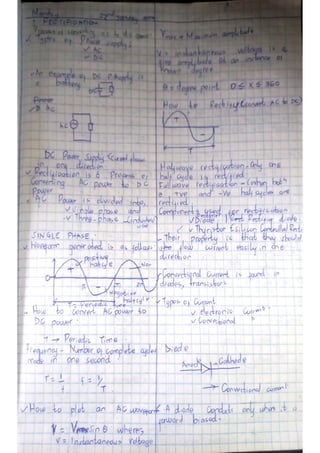 Monday
1. RECTIFICATION
process of converting AC to DC
Types of Power supply
✓ AC
✓ DC
✓ An example of DC Power is
a battery
DC
✓ B AC
AC
DC Power Supply (Current flows
in one direction
✓ Rectification is a Process of
Converting AC power to DC
Power
✓ AC Power is divided into;
✓ Single phase and
✓ Three-phase
SINGLE PHASE :
✓ Waveform generated is as follows
positive
halfcycle
negative
halfcycle
T = Periodic Time
- How to convert AC power to
DC power.
T → Periodic Time
Frequency - Number of complete cycles
made in one second
T = 1/f f = 1/T
✓ How to plot an AC waveform
V = Vmax sin θ where;
V = Instantaneous voltage
Vmax = Maximum amplitude
V = instantaneous voltage is a
sine amplitude at an instance of
degree
θ = degree point 0 ≤ x ≤ 360
How to Rectify (Convert AC to DC)
Halfwave rectification - Only one
half cycle is rectified
Fullwave rectification - (when both
+ve and -ve halfcycles are
rectified
Components used for rectification
✓ Diode
✓ Thyristor (Silicon Controlled Recti
- Their property is that they should
flow current easily in one
direction
✓ Conventional current is found in
diodes, transistors
✓ Types of Current
✓ Electronic current
✓ Conventional "
Diode
Anode Cathode
→ Conventional current
✓ A diode conducts only when it is
forward biased.